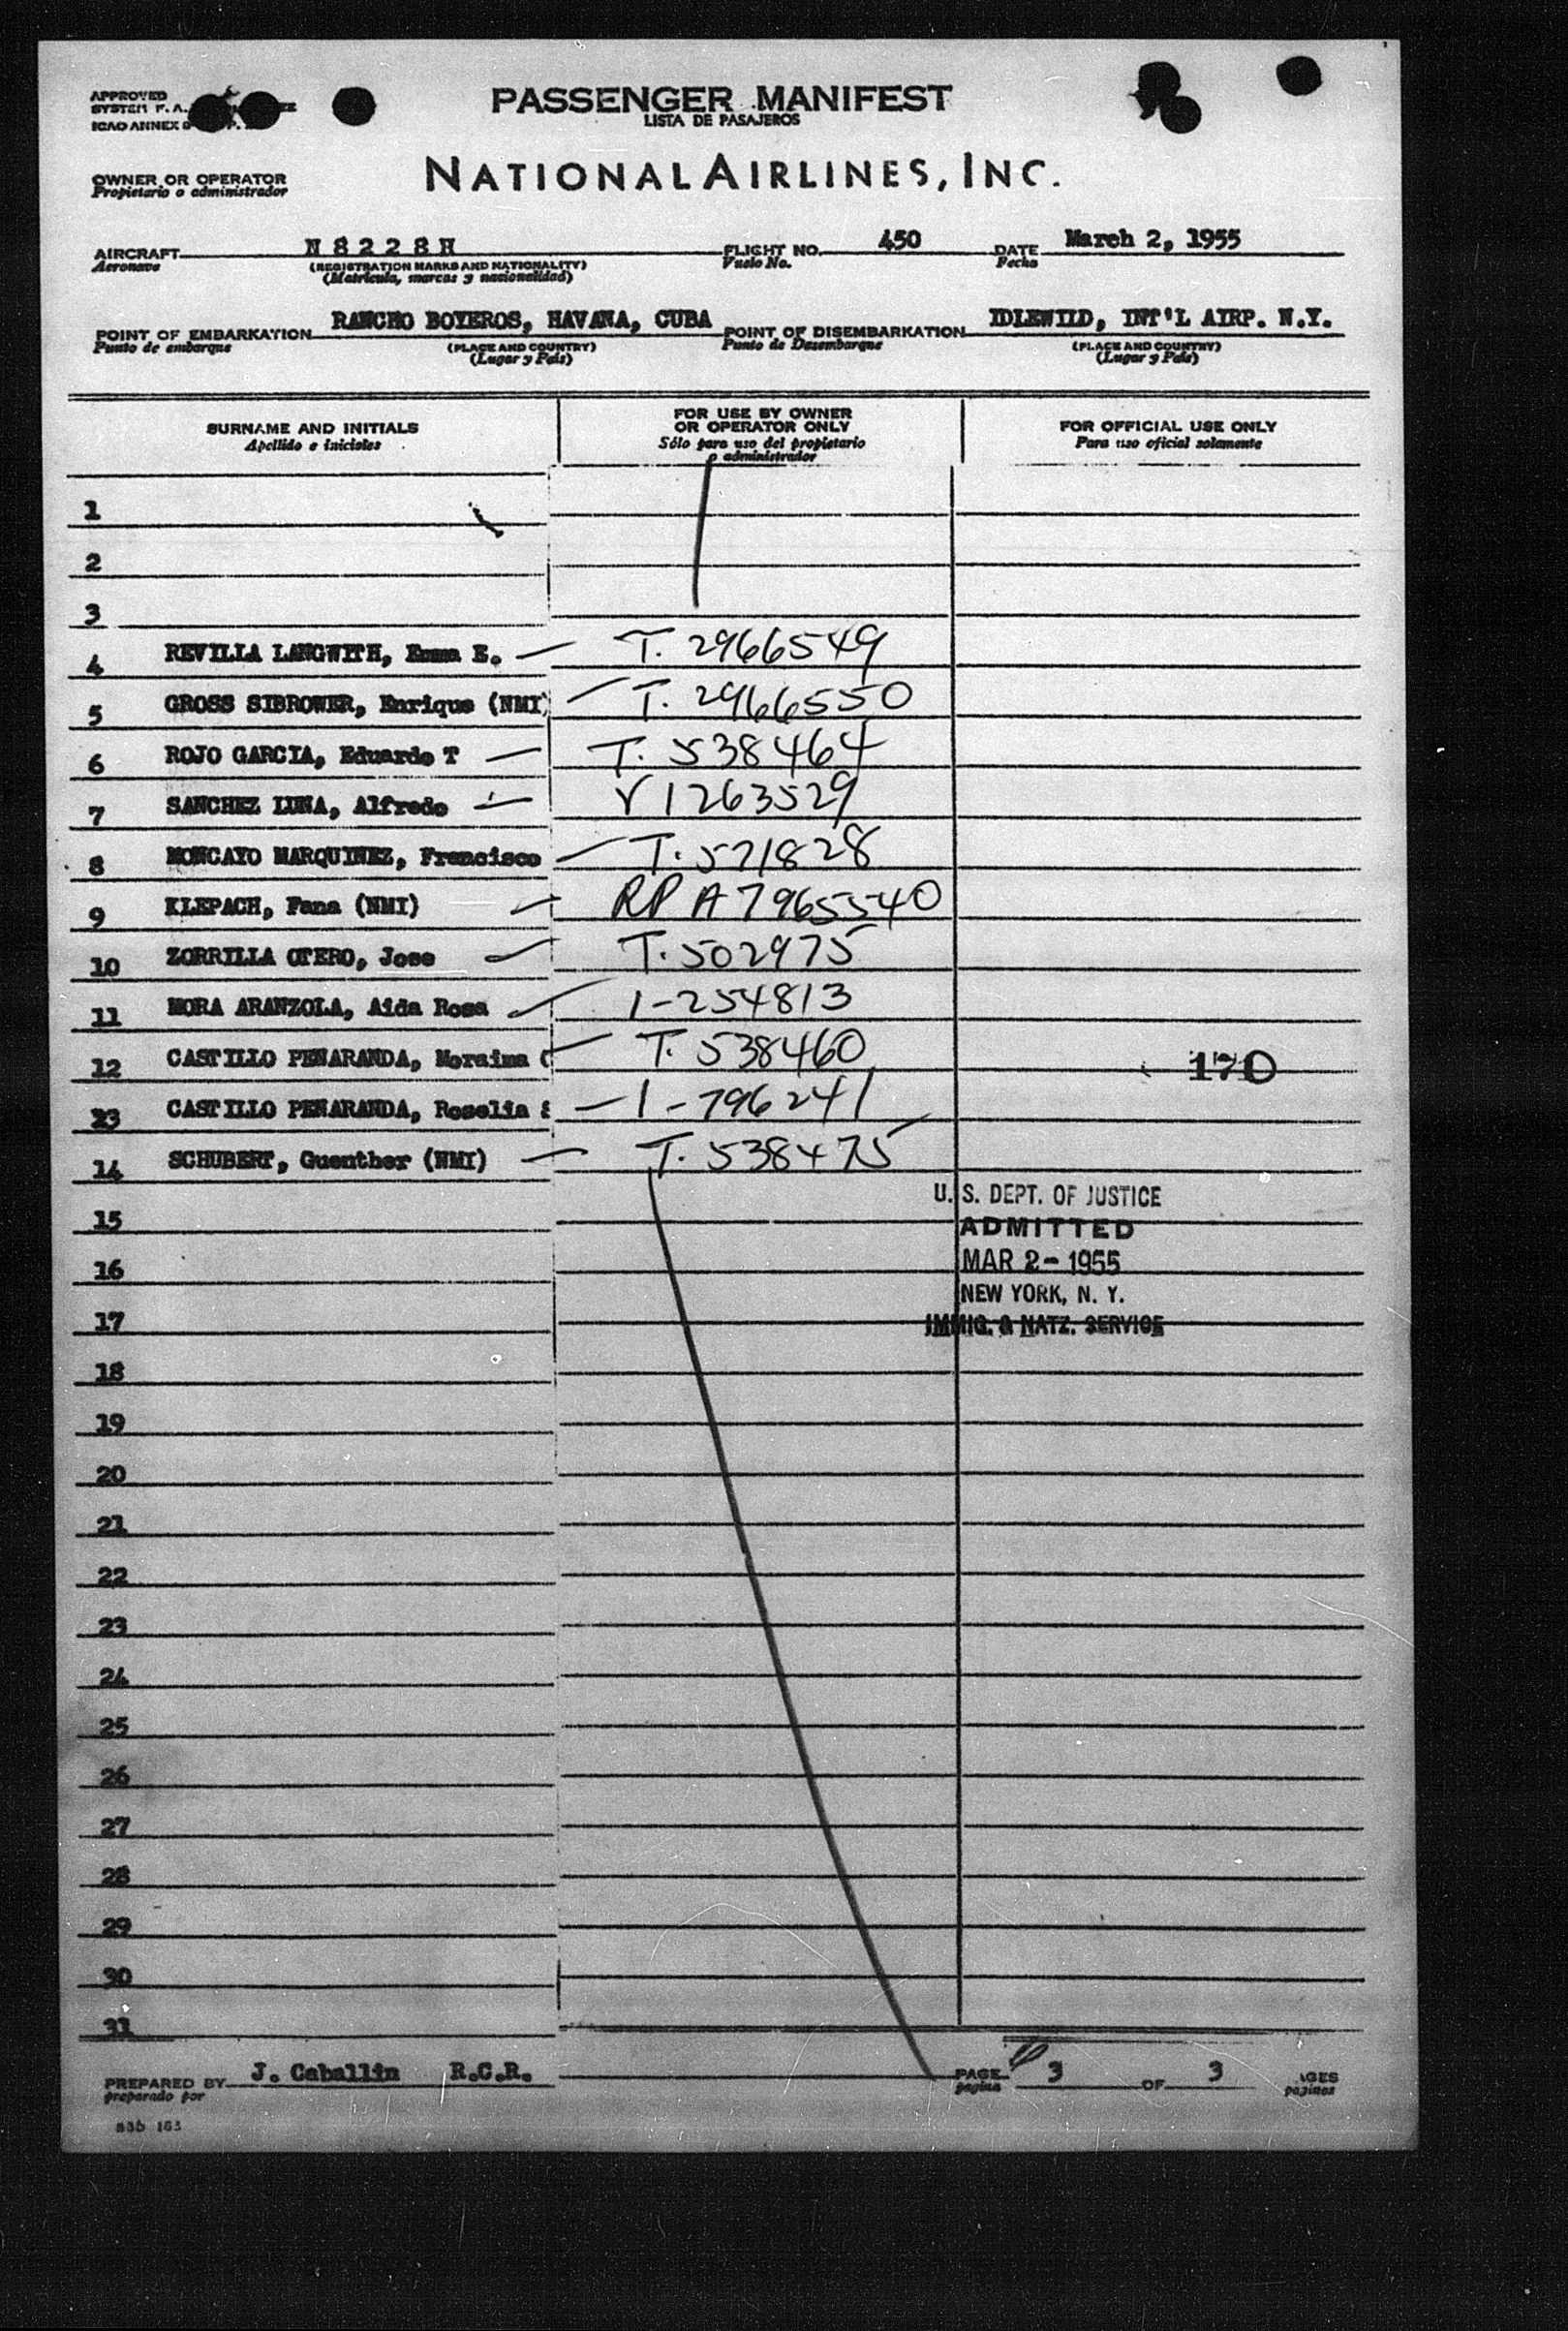 APPROVED
SYSTEM F. A.
ICAO ANNEX 9
PASSENGER MANIFEST
LISTA DE PASAJEROS
OWNER OR OPERATOR
Propietario o administrador
NATIONAL AIRLINES, INC.
AIRCRAFT N 8 2 2 8 H FLIGHT NO. 450 DATE March 2, 1955
Aeronave (REGISTRATION MARKS AND NATIONALITY) Vuelo No. Fecha
(Matricula, marcas y nacionalidad)
POINT OF EMBARKATION RANCHO BOYEROS, HAVANA, CUBA POINT OF DISEMBARKATION IDLEWILD, INT'L AIRP. N.Y.
Punto de embarque (PLACE AND COUNTRY) Punto de Desembarque (PLACE AND COUNTRY)
(Lugar y País) (Lugar y País)
SURNAME AND INITIALS
Apellido e iniciales
FOR USE BY OWNER
OR OPERATOR ONLY
Sólo para uso del propietario
o administrador
FOR OFFICIAL USE ONLY
Para uso oficial solamente
1
2
3
4 REVILLA LANGWITH, Emma E. T. 2966549
5 GROSS SIBROWER, Enrique (NMI) T. 2966550
6 ROJO GARCIA, Eduardo T T. 538464
7 SANCHEZ LUNA, Alfredo V 1263529
8 MONCAYO MARQUINEZ, Francisco T. 571828
9 KLEPACH, Fana (NMI) RP A7965540
10 ZORRILLA OTERO, Jose T. 502975
11 MORA ARANZOLA, Aida Rosa 1-254813
12 CASTILLO PENARANDA, Moraima C T. 538460 170
13 CASTILLO PENARANDA, Roselia 1-796241
14 SCHUBERT, Guenther (NMI) T. 538475
U. S. DEPT. OF JUSTICE
15 ADMITTED
16 MAR 2- 1955
NEW YORK, N. Y.
17 IMMIG. & NATZ. SERVICE
18
19
20
21
22
23
24
25
26
27
28
29
30
31
PREPARED BY J. Caballin R.C.R. PAGE 3 OF 3 AGES
preparado por pagina paginas